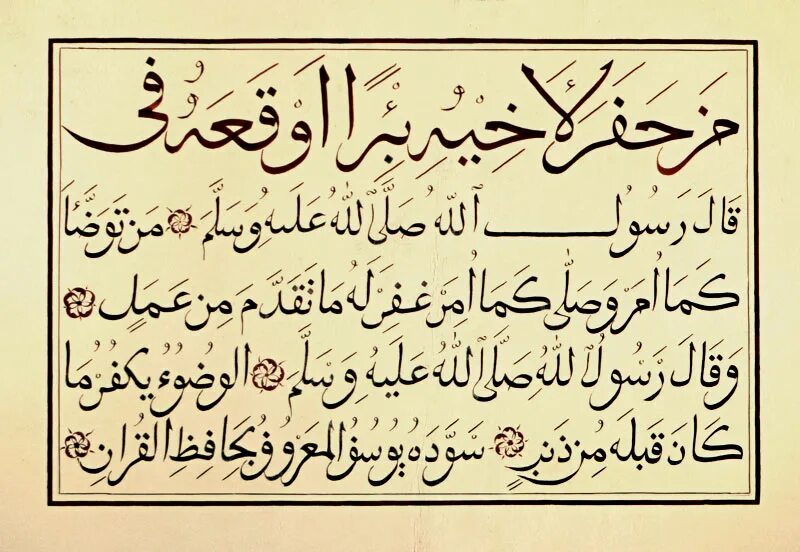 مَنْ حَفَرَ لِأَخِيهِ بِئْرًا أَوْقَعَهُ فِي
قَالَ رَسُولُ ٱللّٰهِ صَلَّى ٱللّٰهُ عَلَيْهِ وَسَلَّمَ مَنْ تَوَضَّأَ
كَمَا أُمِرَ وَصَلّٰى كَمَا أُمِرَ غُفِرَ لَهُ مَا تَقَدَّمَ مِنْ عَمَلٍ
وَقَالَ رَسُولُ ٱللّٰهِ صَلَّى ٱللّٰهُ عَلَيْهِ وَسَلَّمَ الوُضُوءُ يُكَفِّرُ مَا
كَانَ قَبْلَهُ مِنْ ذَنْبٍ سَوَّدَهُ يُوسُفُ المَعْرُوفُ بِحَافِظِ القُرْاٰنِ